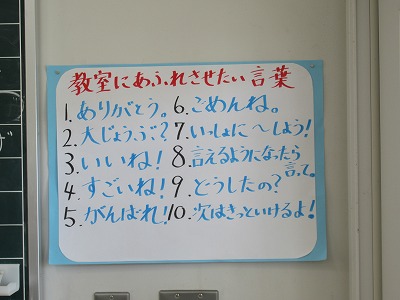 教室にあふれさせたい言葉
1. ありがとう。
2. 大じょうぶ?
3. いいね!
4. すごいね!
5. がんばれ!
6. ごめんね。
7. いっしょに〜しよう!
8. 言えるようになったら
言って。
9. どうしたの?
10. 次はきっといけるよ!